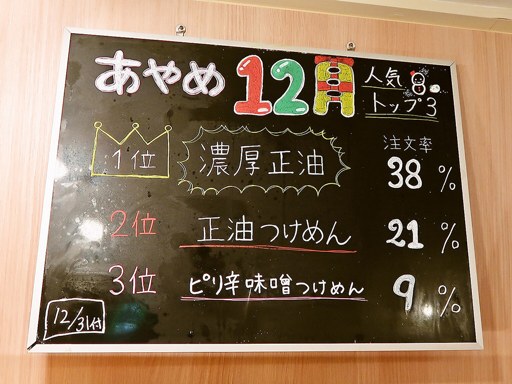 あやめ 12月 人気
トップ3
注文率
1位 濃厚正油 38%
2位 正油つけめん 21%
3位 ピリ辛味噌つけめん 9%
12/31付